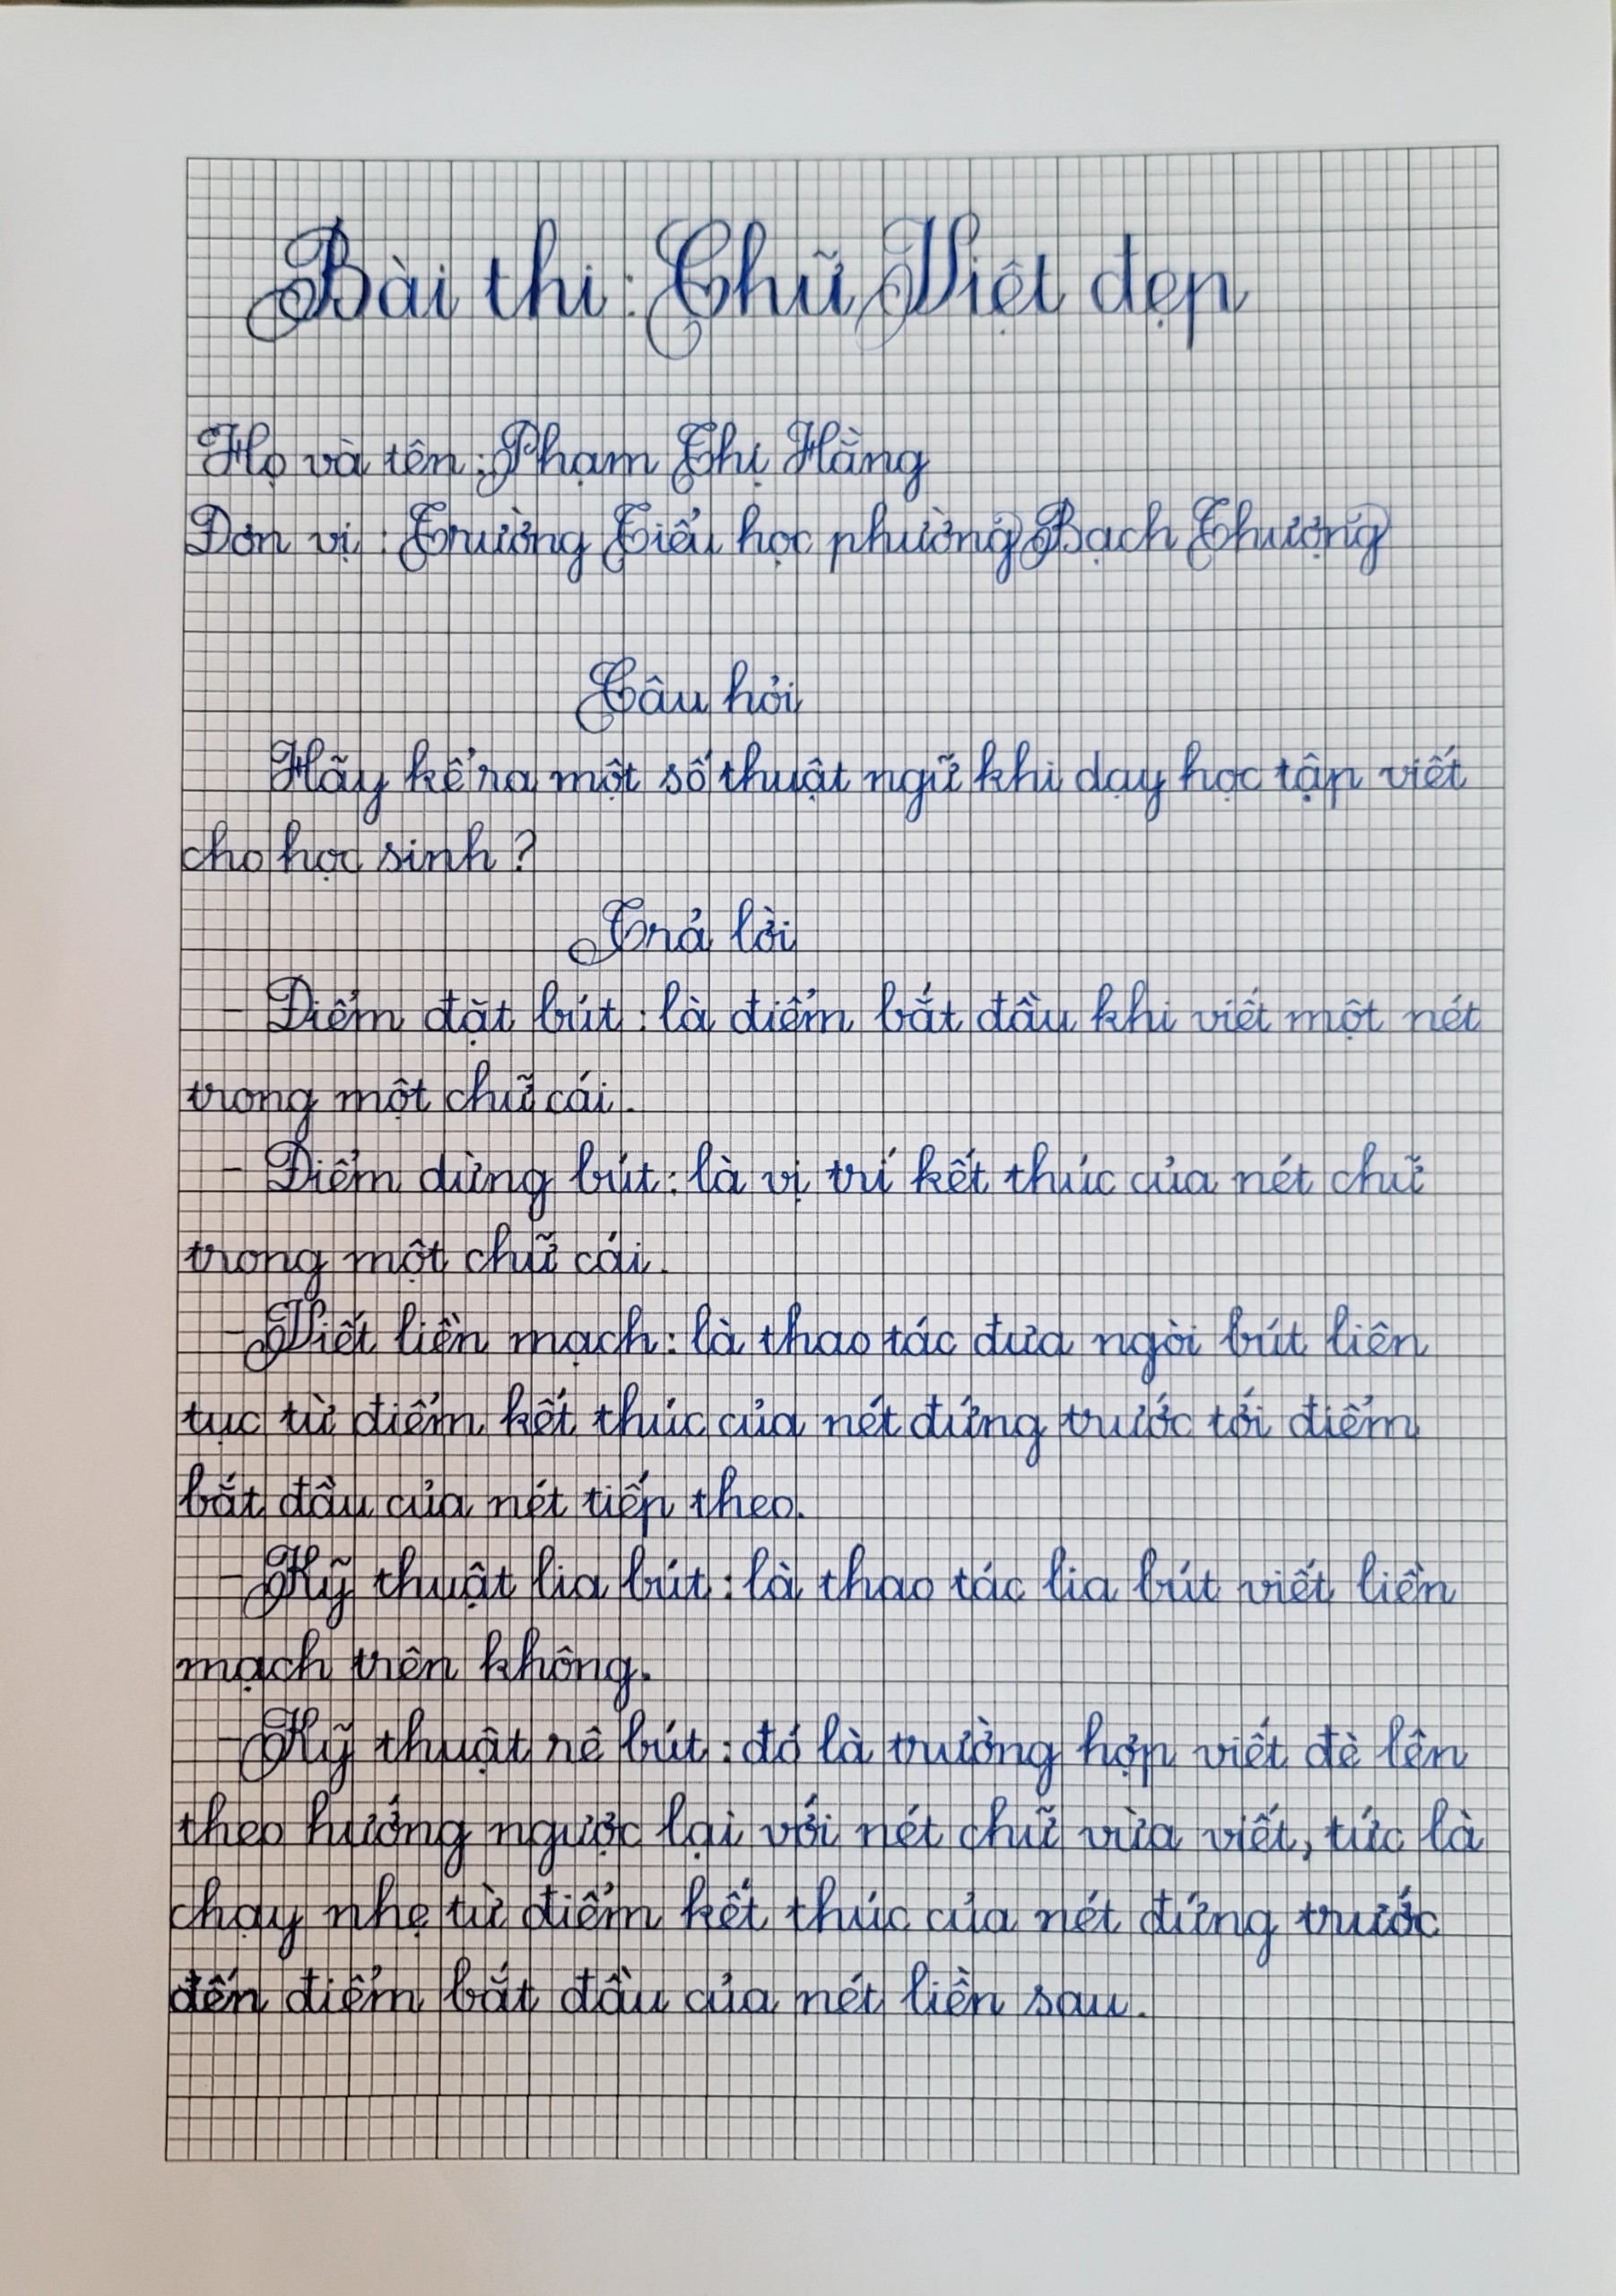 Bài thi: Chữ Việt đẹp
Họ và tên: Phạm Thị Hằng
Đơn vị: Trường Tiểu học phường Bạch Thượng
Câu hỏi
Hãy kể ra một số thuật ngữ khi dạy học tập viết
cho học sinh?
Trả lời
- Điểm đặt bút: là điểm bắt đầu khi viết một nét
trong một chữ cái.
- Điểm dừng bút: là vị trí kết thúc của nét chữ
trong một chữ cái.
- Viết liền mạch: là thao tác đưa ngòi bút liên
tục từ điểm kết thúc của nét đứng trước tới điểm
bắt đầu của nét tiếp theo.
- Kỹ thuật lia bút: là thao tác lia bút viết liền
mạch trên không.
- Kỹ thuật rê bút: đó là trường hợp viết đè lên
theo hướng ngược lại với nét chữ vừa viết, tức là
chạy nhẹ từ điểm kết thúc của nét đứng trước
đến điểm bắt đầu của nét liền sau.